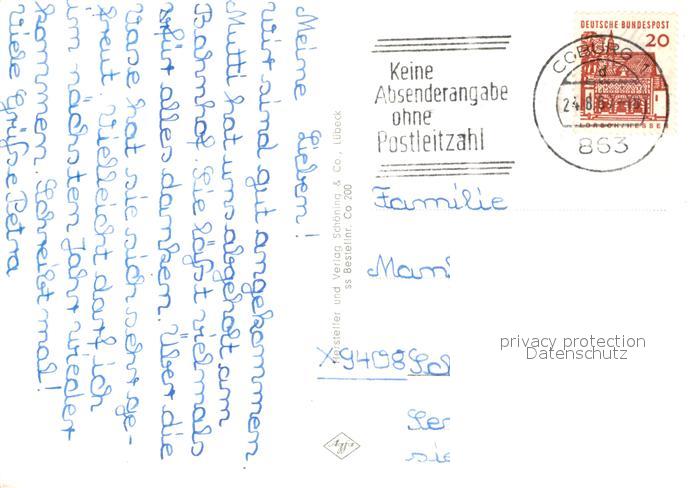 Meine Lieben!
Wir sind gut angekommen.
Mutti hat uns abgeholt am
Bahnhof. Sie läßt vielmals
für alles danken. Über die
Vase hat sie sich sehr ge-
freut. Vielleicht darf ich
im nächsten Jahr wieder
kommen. Schreibt mal!
Viele Grüße Petra
Hersteller und Verlag Schöning & Co., Lübeck
ss Bestellnr. Co 200
Keine
Absenderangabe
ohne
Postleitzahl
DEUTSCHE BUNDESPOST
20
LORSCH/HESSEN
COBURG 1
d
24.8.6
863
Familie
X9408
privacy protection
Datenschutz
agfa